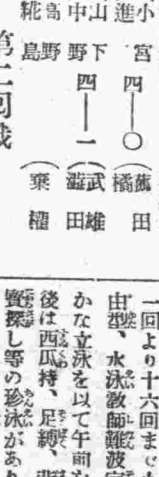 小宮
進
四――〇
(薫田
橘
山下
中野
四――一
(武雄
澁田
高野
糀島
(棄權
第二回戰
一回より十六回まで
由型、水泳教師難波
かな立泳を以て午前
後は西瓜持、足縛、
寶探し等の珍泳があり